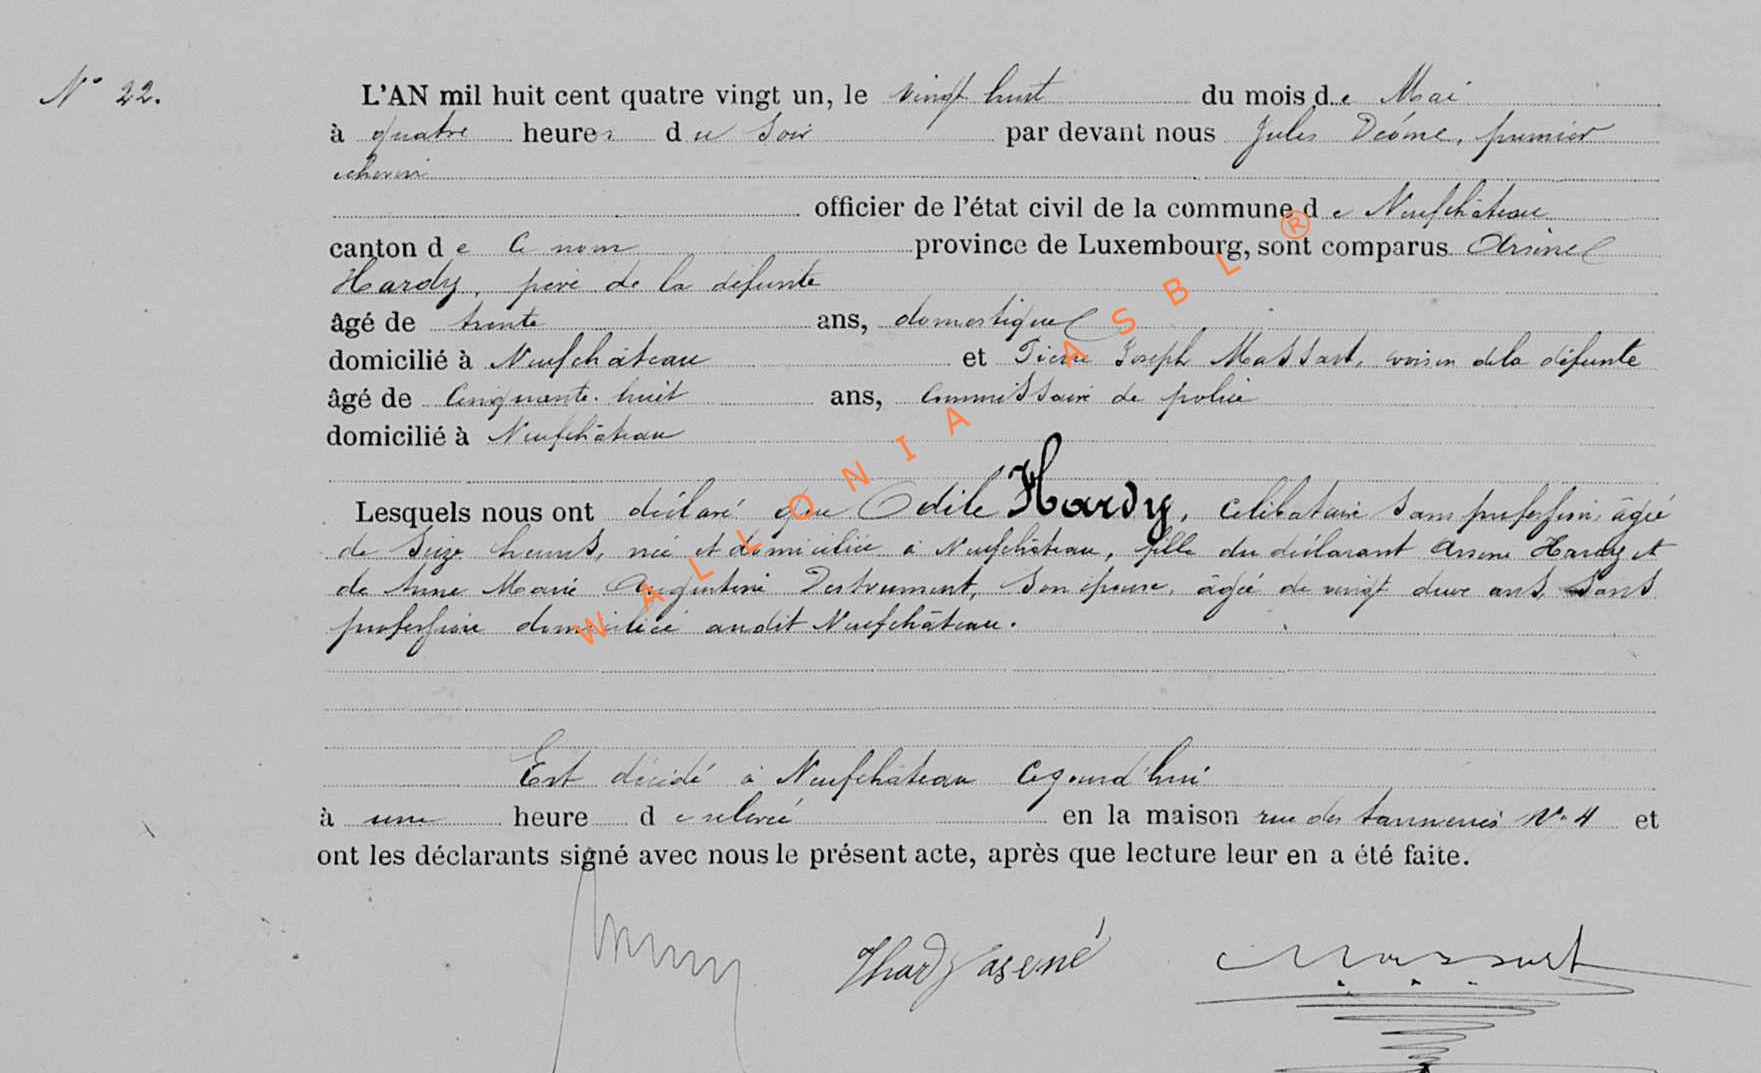 N° 22.
L'AN mil huit cent quatre vingt un, le vingt huit du mois de Mai
à quatre heures du Soir par devant nous Jules Déome, premier
échevin
officier de l'état civil de la commune de Neufchâteau
canton de Ce nom province de Luxembourg, sont comparus Arsène
Hardy, père de la défunte
âgé de trente ans, domestique
domicilié à Neufchâteau et Pierre Joseph Massart, voisin de la défunte
âgé de Cinquante-huit ans, Commissaire de police
domicilié à Neufchâteau
Lesquels nous ont déclaré que Odile Hardy, célibataire sans profession, âgée
de Seize heures, née et domiciliée à Neufchâteau, fille du déclarant Arsène Hardy et
de Anne Marie Augustine Destrument, son épouse, âgée de vingt deux ans, sans
profession domiciliée audit Neufchâteau.
Est décédé à Neufchâteau Cejourd'hui
à une heure de relevée en la maison rue des tanneries N° 4 et
ont les déclarants signé avec nous le présent acte, après que lecture leur en a été faite.
Hardy asené
Massart
WALLONIA ASBL ®